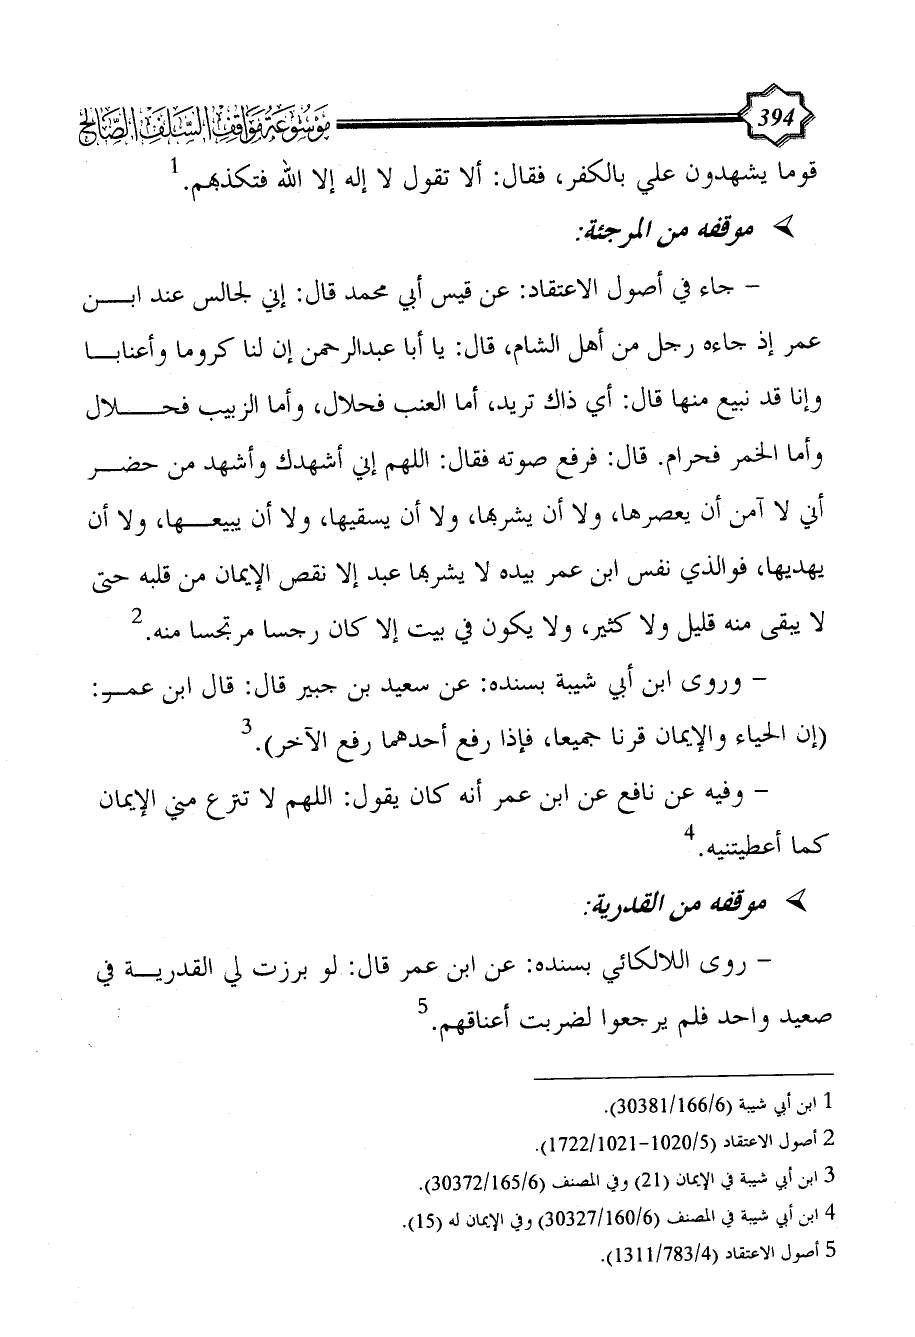 394
موسوعة مواقف السلف الصالح
قوما يشهدون علي بالكفر، فقال: ألا تقول لا إله إلا الله فتكذبهم.1
موقفه من المرجئة:
– جاء في أصول الاعتقاد: عن قيس أبي محمد قال: إني لجالس عند ابن
عمر إذ جاءه رجل من أهل الشام، قال: يا أبا عبدالرحمن إن لنا كروما وأعنابا
وإنا قد نبيع منها قال: أي ذاك تريد، أما العنب فحلال، وأما الزبيب فحلال
وأما الخمر فحرام. قال: فرفع صوته فقال: اللهم إني أشهدك وأشهد من حضر
أني لا آمن أن يعصرها، ولا أن يشربها، ولا أن يسقيها، ولا أن يبيعها، ولا أن
يهديها، فوالذي نفس ابن عمر بيده لا يشربها عبد إلا نقص الإيمان من قلبه حتى
لا يبقى منه قليل ولا كثير، ولا يكون في بيت إلا كان رجسا مرتجسا منه.2
– وروى ابن أبي شيبة بسنده: عن سعيد بن جبير قال: قال ابن عمر:
(إن الحياء والإيمان قرنا جميعا، فإذا رفع أحدهما رفع الآخر).3
– وفيه عن نافع عن ابن عمر أنه كان يقول: اللهم لا تترع مني الإيمان
كما أعطيتنيه.4
موقفه من القدرية:
– روى اللالكائي بسنده: عن ابن عمر قال: لو برزت لي القدرية في
صعيد واحد فلم يرجعوا لضربت أعناقهم.5
1 ابن أبي شيبة (30381/166/6).
2 أصول الاعتقاد (1722/1021-1020/5).
3 ابن أبي شيبة في الإيمان (21) وفي المصنف (30372/165/6).
4 ابن أبي شيبة في المصنف (30327/160/6) وفي الإيمان له (15).
5 أصول الاعتقاد (1311/783/4).